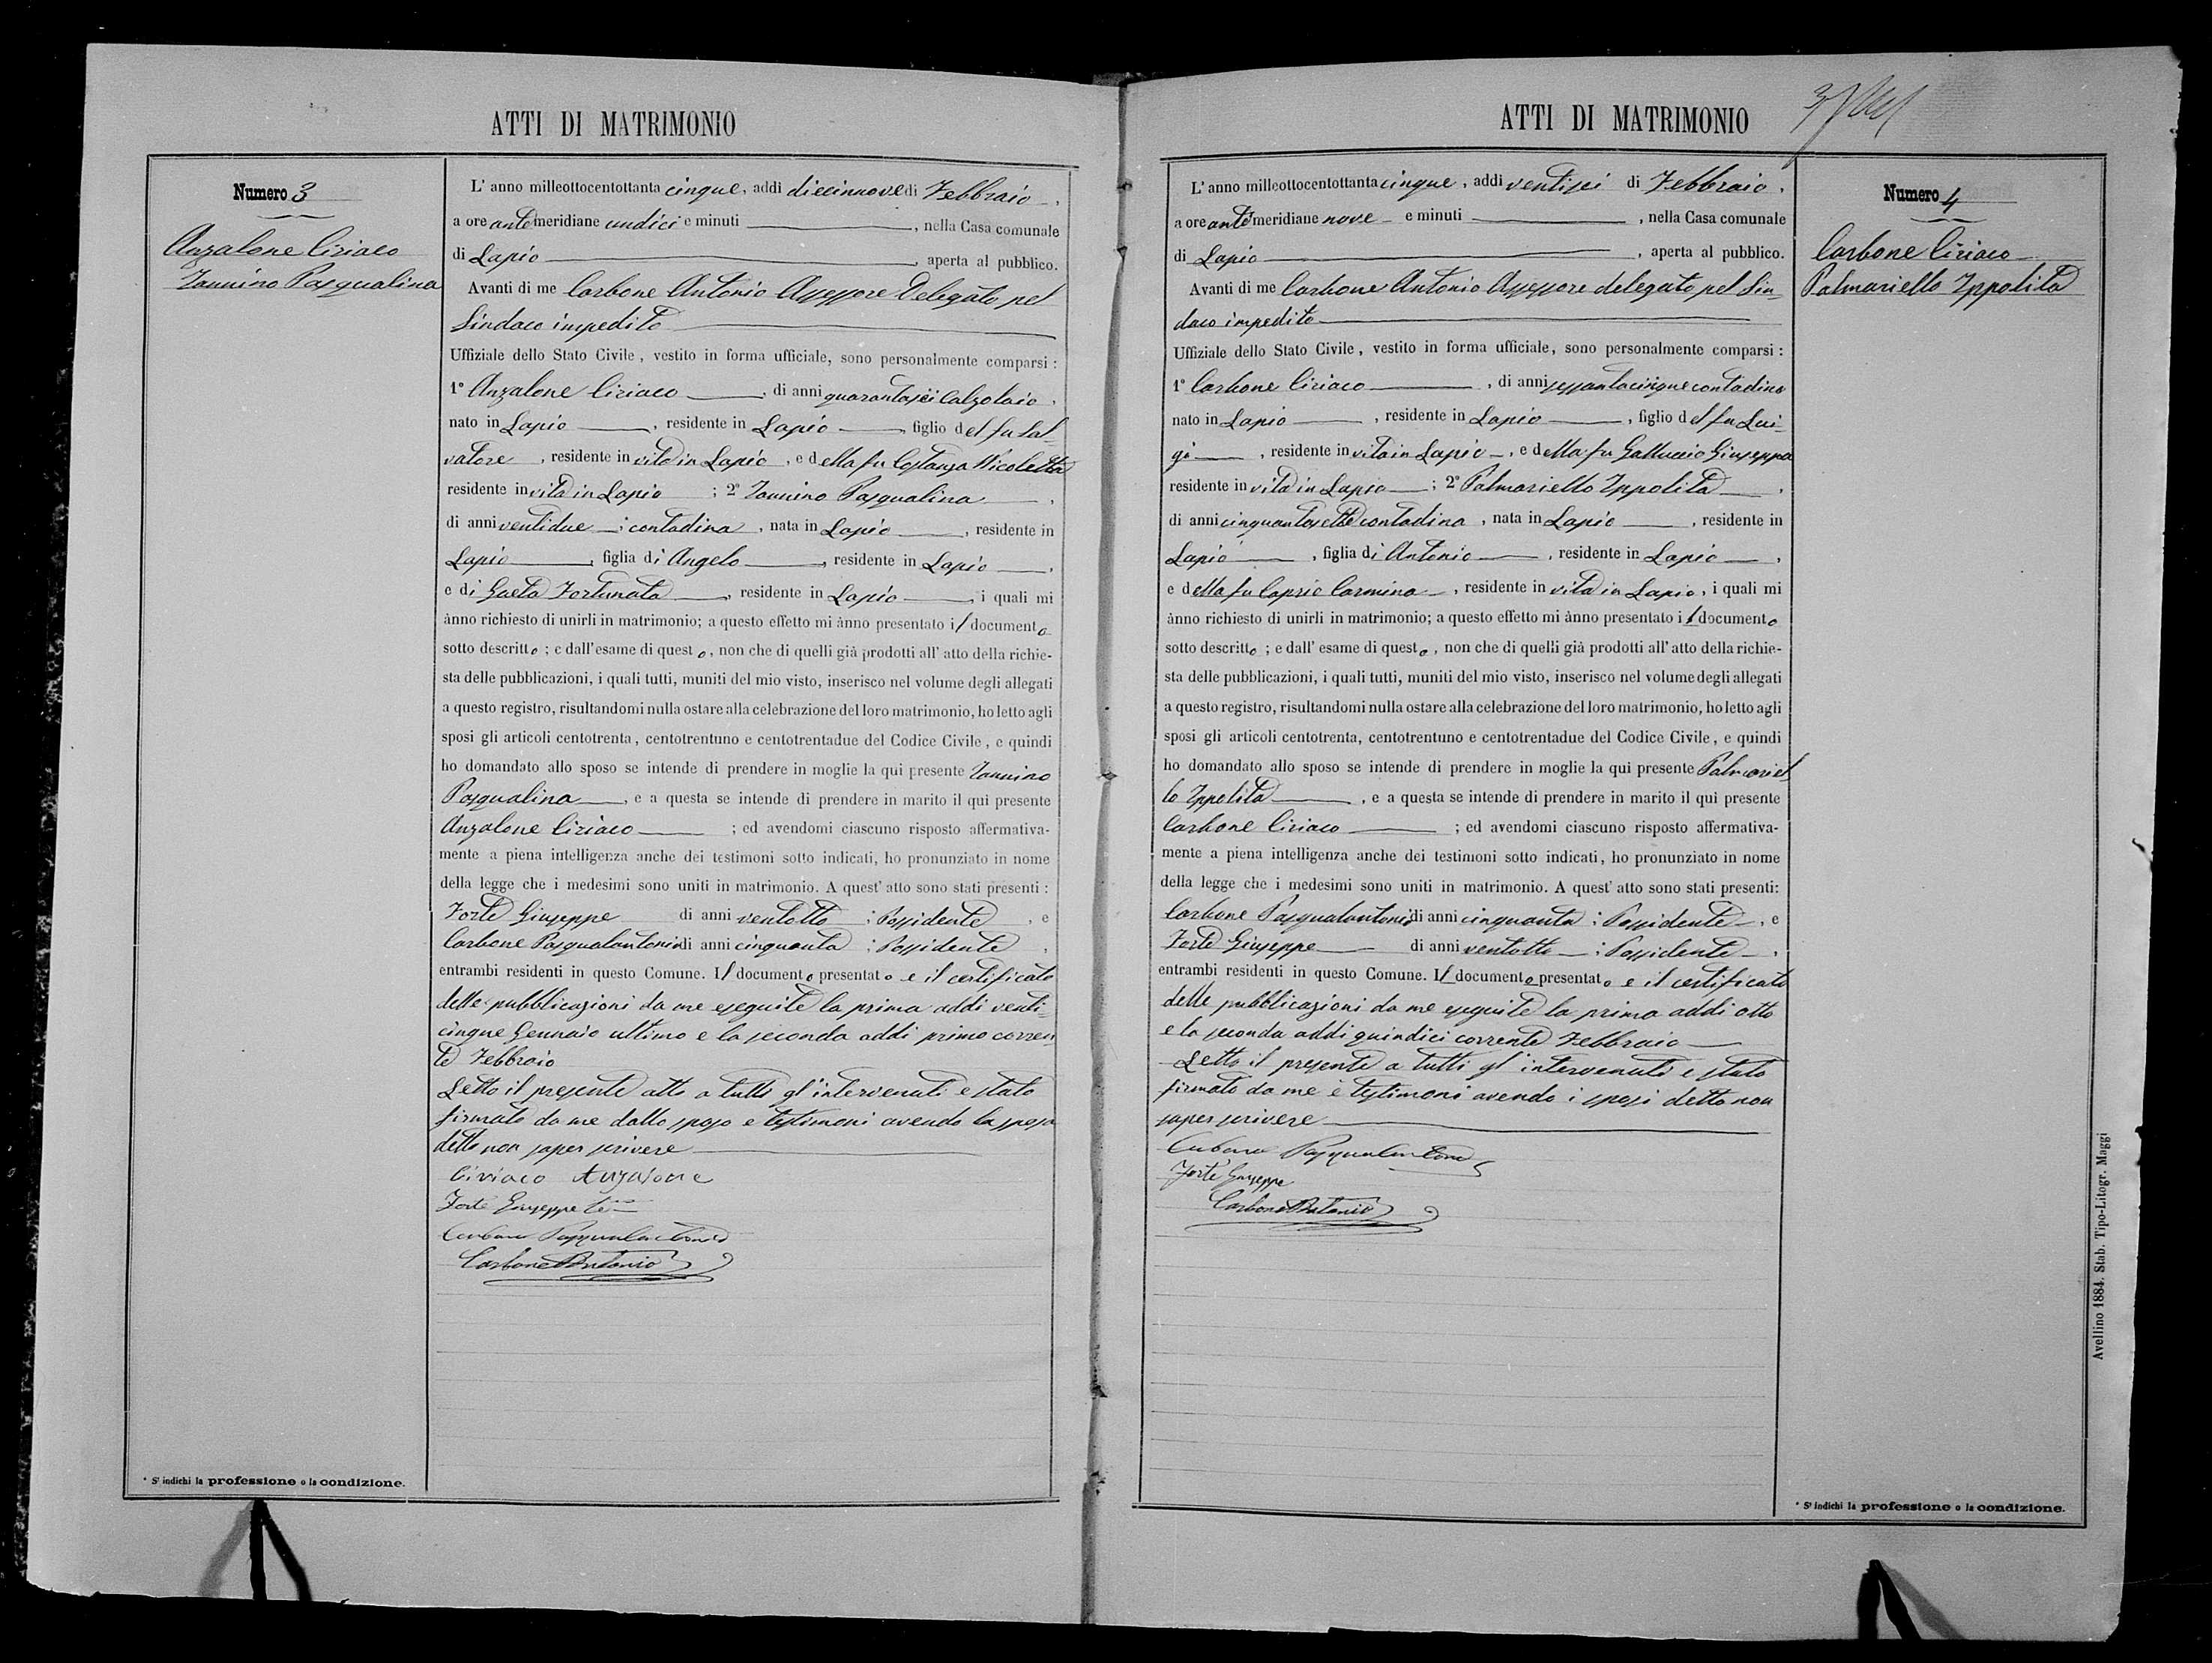 ATTI DI MATRIMONIO
Numero 3
Anzalone Ciriaco
Iannino Pasqualina
L'anno milleottocentottanta cinque, addì diecinnove di Febbraio,
a ore antimeridiane undici e minuti, nella Casa comunale
di Lapio, aperta al pubblico.
Avanti di me Carbone Antonio Assessore Delegato pel
Sindaco impedito
Uffiziale dello Stato Civile, vestito in forma ufficiale, sono personalmente comparsi:
1° Anzalone Ciriaco, di anni quarantasei Calzolaio,
nato in Lapio, residente in Lapio, figlio del fu Sal-
vatore, residente in vita in Lapio, e della fu Costanza Nicoletta
residente in vita in Lapio; 2° Iannino Pasqualina,
di anni ventidue; contadina, nata in Lapio, residente in
Lapio, figlia di Angelo, residente in Lapio,
e di Gaeta Fortunata, residente in Lapio, i quali mi
ànno richiesto di unirli in matrimonio; a questo effetto mi ànno presentato il documento
sotto descritto; e dall'esame di questo, non che di quelli già prodotti all'atto della richie-
sta delle pubblicazioni, i quali tutti, muniti del mio visto, inserisco nel volume degli allegati
a questo registro, risultandomi nulla ostare alla celebrazione del loro matrimonio, ho letto agli
sposi gli articoli centotrenta, centotrentuno e centotrentadue del Codice Civile, e quindi
ho domandato allo sposo se intende di prendere in moglie la qui presente Iannino
Pasqualina, e a questa se intende di prendere in marito il qui presente
Anzalone Ciriaco; ed avendomi ciascuno risposto affermativa-
mente a piena intelligenza anche dei testimoni sotto indicati, ho pronunziato in nome
della legge che i medesimi sono uniti in matrimonio. A quest'atto sono stati presenti:
Forte Giuseppe di anni ventotto; Possidente, e
Carbone Pasqualantonio di anni cinquanta; Possidente,
entrambi residenti in questo Comune. Il documento presentato e il certificato
delle pubblicazioni da me eseguite la prima addì venti-
cinque Gennaio ultimo e la seconda addì primo corren
te Febbraio
Letto il presente atto a tutti gl'intervenuti e stato
firmato da me dallo sposo e testimoni avendo la sposa
detto non saper scrivere
Ciriaco Anzalone
Forte Giuseppe
Carbone Pasqualantonio
Carbone Antonio
* Si indichi la professione o la condizione.
ATTI DI MATRIMONIO
Numero 4
Carbone Ciriaco
Palmariello Ippolita
L'anno milleottocentottanta cinque, addì ventisei di Febbraio,
a ore antimeridiane nove e minuti, nella Casa comunale
di Lapio, aperta al pubblico.
Avanti di me Carbone Antonio Assessore delegato pel Sin-
daco impedito
Uffiziale dello Stato Civile, vestito in forma ufficiale, sono personalmente comparsi:
1° Carbone Ciriaco, di anni sessantacinque contadino
nato in Lapio, residente in Lapio, figlio del fu Lui-
gi, residente in vita in Lapio, e della fu Galluccio Giuseppa
residente in vita in Lapio; 2° Palmariello Ippolita,
di anni cinquantasette contadina, nata in Lapio, residente in
Lapio, figlia di Antonio, residente in Lapio,
e della fu Caprio Carmina, residente in vita in Lapio, i quali mi
ànno richiesto di unirli in matrimonio; a questo effetto mi ànno presentato il documento
sotto descritto; e dall'esame di questo, non che di quelli già prodotti all'atto della richie-
sta delle pubblicazioni, i quali tutti, muniti del mio visto, inserisco nel volume degli allegati
a questo registro, risultandomi nulla ostare alla celebrazione del loro matrimonio, ho letto agli
sposi gli articoli centotrenta, centotrentuno e centotrentadue del Codice Civile, e quindi
ho domandato allo sposo se intende di prendere in moglie la qui presente Palmariel
lo Ippolita, e a questa se intende di prendere in marito il qui presente
Carbone Ciriaco; ed avendomi ciascuno risposto affermativa-
mente a piena intelligenza anche dei testimoni sotto indicati, ho pronunziato in nome
della legge che i medesimi sono uniti in matrimonio. A quest'atto sono stati presenti:
Carbone Pasqualantonio di anni cinquanta; Possidente, e
Forte Giuseppe di anni ventotto; Possidente,
entrambi residenti in questo Comune. Il documento presentato e il certificato
delle pubblicazioni da me eseguite la prima addì otto
e la seconda addì quindici corrente Febbraio
Letto il presente a tutti gl'intervenuti e stato
firmato da me e testimoni avendo i sposi detto non
saper scrivere
Carbone Pasqualantonio
Forte Giuseppe
Carbone Antonio
* Si indichi la professione o la condizione.
Avellino 1884. Stab. Tipo-Litogr. Maggi